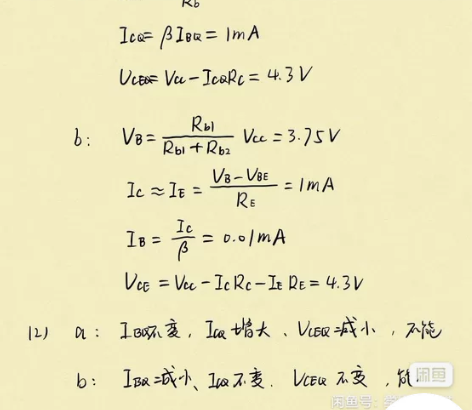 Rb
ICQ = βIBQ = 1mA
UCEQ = Vcc - ICQRc = 4.3V
b: VB = Rb1 / (Rb1 + Rb2) Vcc = 3.75V
Ic ≈ IE = (VB - VBE) / RE = 1mA
IB = Ic / β = 0.01mA
UCE = Vcc - IcRc - IERE = 4.3V
(2) a: IBQ不变, ICQ增大、UCEQ减小, 不能
b: IBQ减小、ICQ不变、UCEQ不变, 能
闲鱼
闲鱼号: